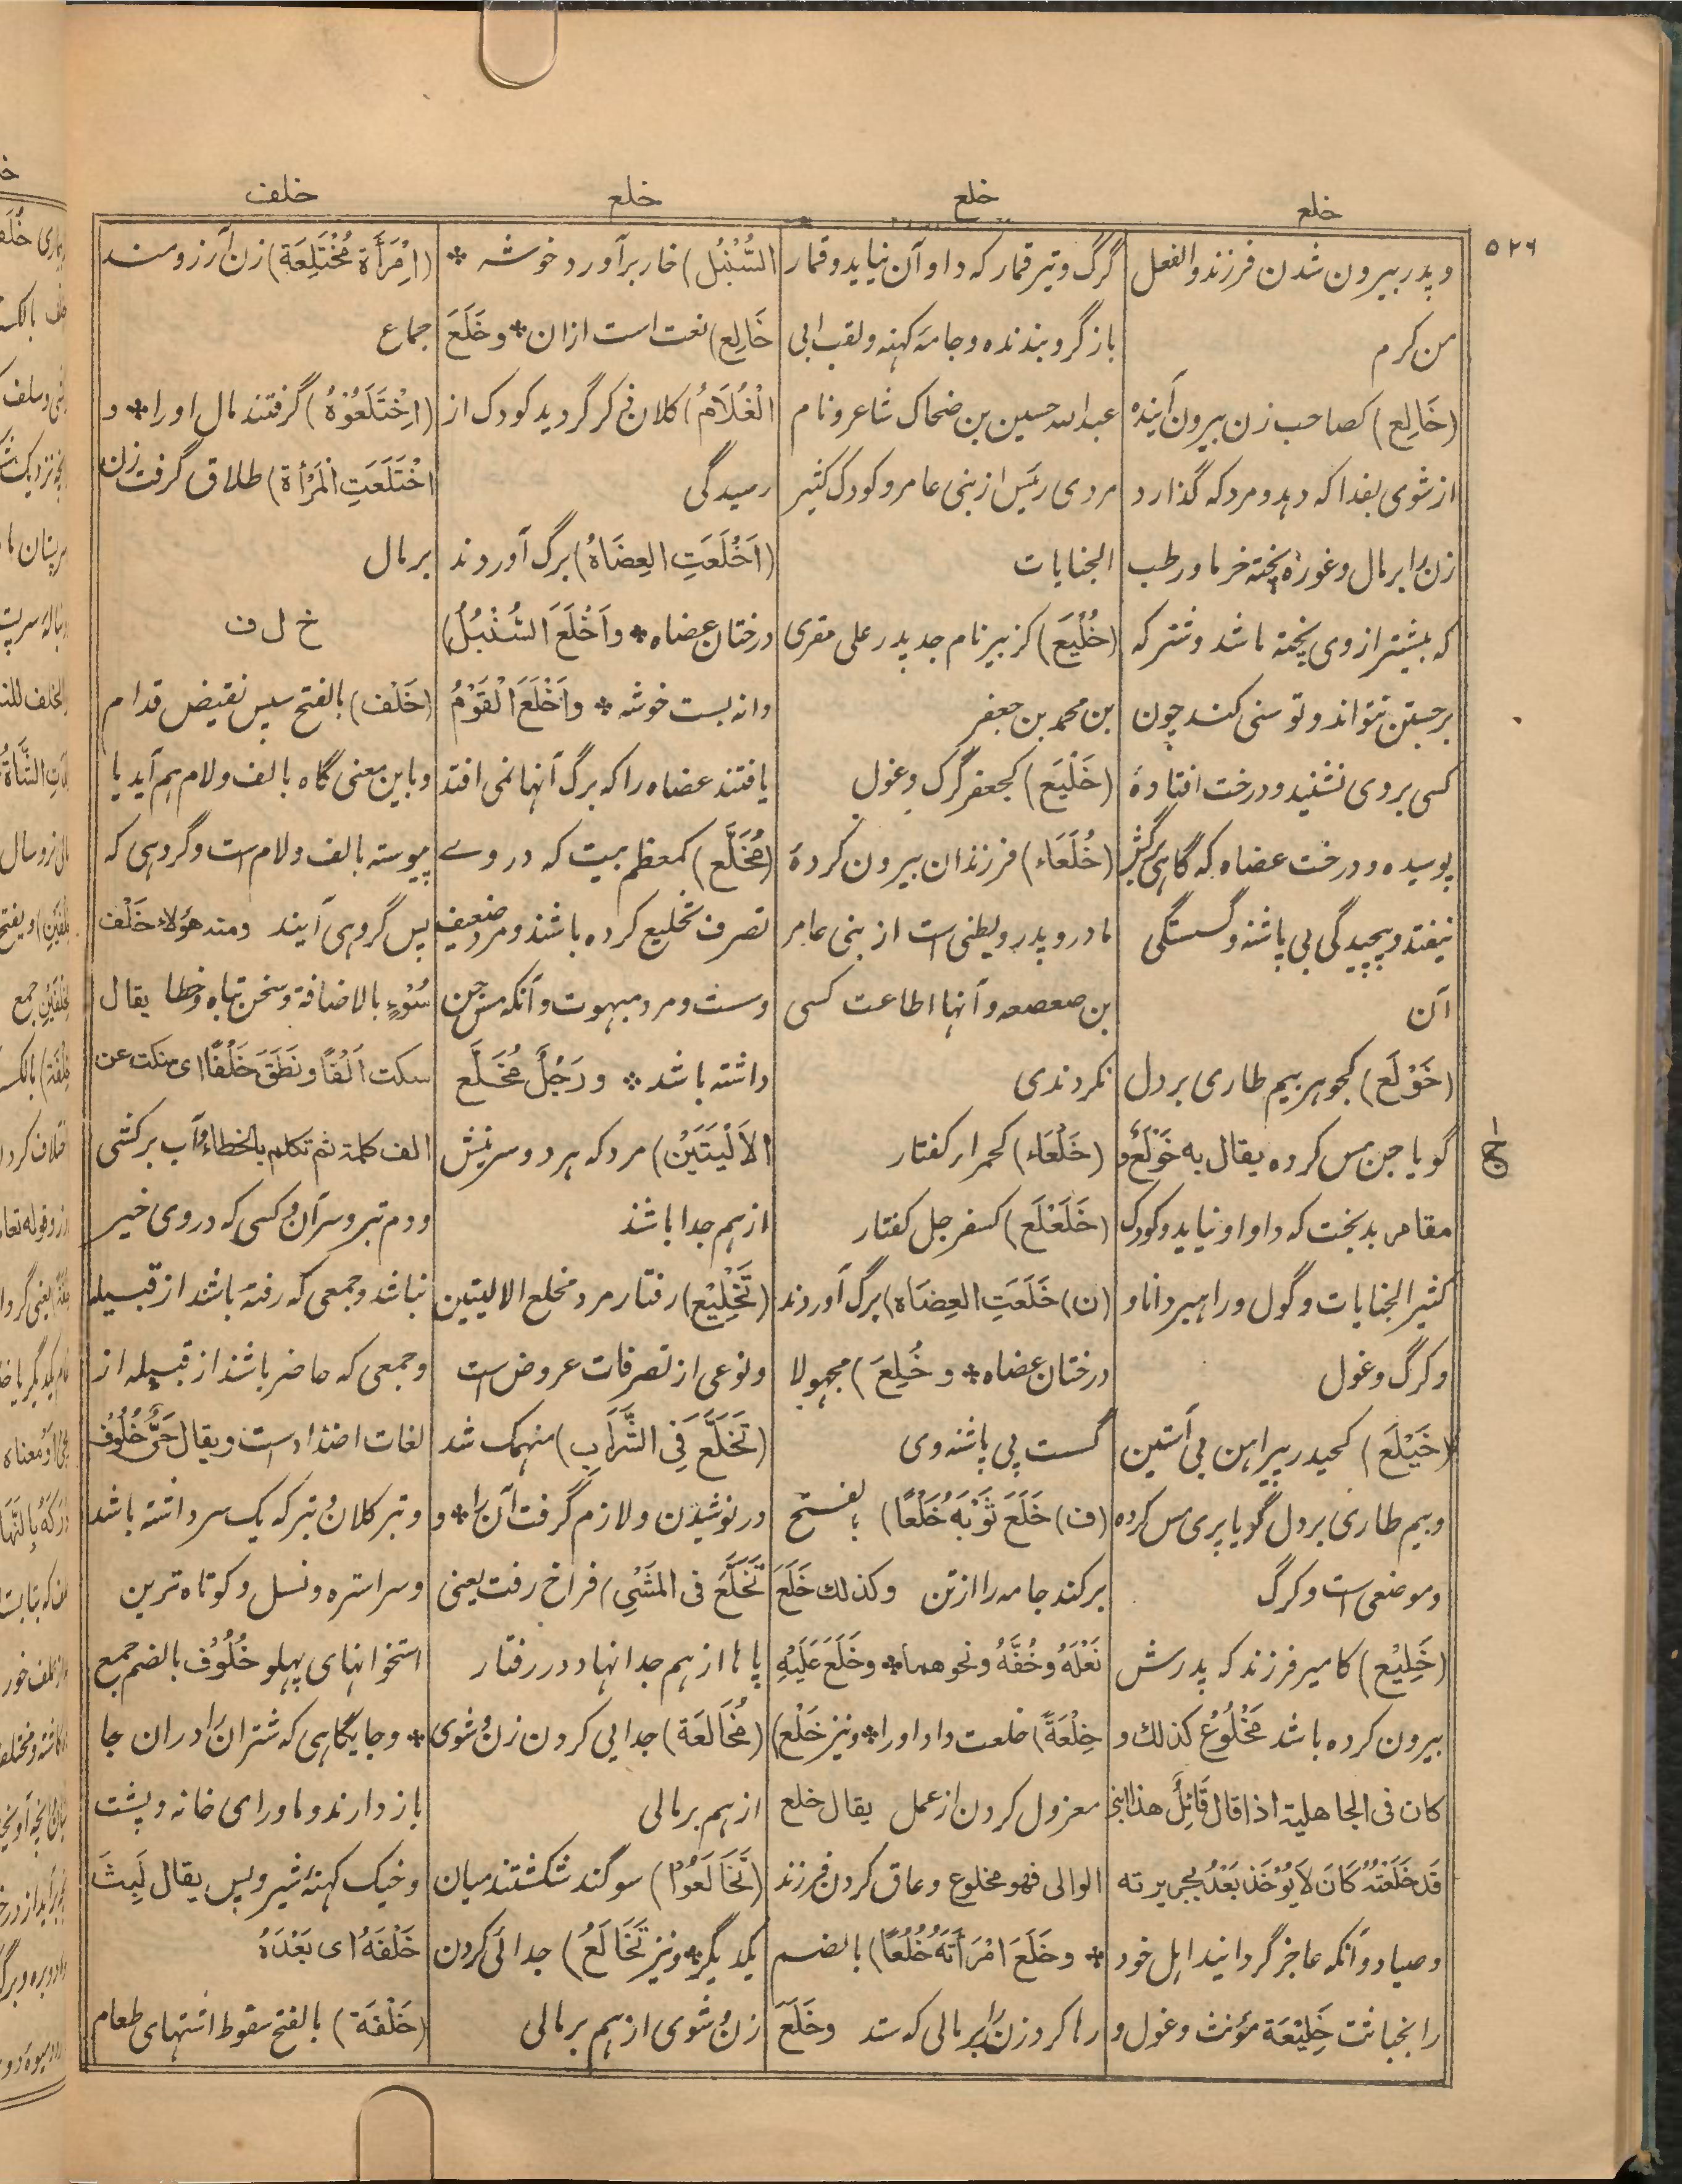 خلع
خلع
خلع
خلف
۵۲۶
و پدر بیرون شدن فرزند و الفعل
من کرم
(خَالِع) کصاحب زن بیرون آینده
از شوی بفدا که دهد و مرد که گذارد
زن را بر مال و غورهٔ پخته خرما و رطب
که بیشتر از وی پخته باشد و شتر که
برجستن نتواند و توسنی کند چون
کسی بر وی نشیند و درخت افتادهٔ
پوسیده و درخت عضاه که گاهی برگش
نیفتد و پیچیدگی پی پاشنه و گسستگی
آن
(خَوْلَع) کجوهر بیم طاری بر دل
گویا جن مس کرده یقال به خَوْلَعٌ و
مقامر بدبخت که داو او نیاید و کودک
کثیر الجنایات و گول و راهبر دانا و
و گرگ و غول
(خَیْلَع) کحیدر پیراهن بی آستین
و بیم طاری بر دل گویا پری مس کرده
و موضعی است و گرگ
(خَلِیْع) کامیر فرزند که پدرش
بیرون کرده باشد مَخْلُوْعٌ کذلك و
كان فی الجاهلیة اذا قال قَائِلٌ هذا ابنی
قَد خَلَعْتُهُ کَانَ لَایُؤْخَذ بَعْدُ بجریرته
و صیاد و آنکه عاجز گردانید اهل خود
را بخباثت خَلِیْعَة مؤنث و غول و
گرگ و تیر قمار که داو آن نیاید و قمار
باز گرو بندنده و جامهٔ کهنه و لقب ابی
عبدالله حسین بن ضحاک شاعر و نام
مردی رئیس از بنی عامر و کودک کثیر
الجنایات
(خُلَیْع) کزبیر نام جد پدر علی مقری
بن محمد بن جعفر
(خَلْیَع) کجعفر گرگ و غول
(خُلَعَاء) فرزندان بیرون کردهٔ
مادر و پدر و بطنی است از بنی عامر
بن صعصعه و آنها اطاعت کسی
نکردندی
(خَلْعَاء) کحمراء کفتار
(خَلَعْلَع) کسفرجل کفتار
(ن) خَلَعَتِ العِضَاه) برگ آوردند
درختان عضاه * و خُلِعَ) مجهولا
گست پی پاشنه وی
(ف) خَلَعَ ثَوْبَهُ خَلْعًا) بالفتح
برکند جامه را از تن وکذلك خَلَعَ
نَعْلَهُ وخُفَّهُ ونحوهما * وخَلَعَ عَلَيْهِ
خِلْعَةً) خلعت داد او را * و نیز خَلْع)
معزول کردن از عمل یقال خلع
الوالی فهو مخلوع و عاق کردن فرزند
* وخَلَعَ امْرَأَتَهُ خُلْعًا) بالضم
رها کرد زن را بر مالی که ستد وخَلَعَ
السُّنْبُل) خار برآورد خوشه *
خَالِع) نعت است ازان * و خَلَعَ
الْغُلَامُ) کلان ذکر گردید کودک از
رسیدگی
(اَخْلَعَتِ العِضَاهُ) برگ آوردند
درختان عضاه * واَخْلَعَ السُّنْبُلُ)
دانه بست خوشه * واَخْلَعَ الْقَوْمُ
یافتند عضاه را که برگ آنها نمی افتد
(مُخَلَّع) کمعظم بیت که در وے
تصرف تخلیع کرده باشند و مرد ضعیف
و سست و مرد مبهوت و آنکه مس جن
داشته باشد * ورَجُلٌ مُخَلَّع
الاَلْیَتَیْن) مرد که هر دو سرینش
از هم جدا باشد
(تَخْلِیْع) رفتار مرد مخلع الالیتین
و نوعی از تصرفات عروض است
(تَخَلَّعَ فِی الشَّرَاب) منهمک شد
در نوشیدن و لازم گرفت آن را * و
تَخَلَّعَ فی المَشْیِ) فراخ رفت یعنی
پاها از هم جدا نهاد در رفتار
(مُخَالَعَة) جدایی کردن زن و شوی
از هم بر مالی
(تَخَالَعُوْا) سوگند شکستند میان
یکدیگر * و نیز تَخَالَعُ) جدائی کردن
زن و شوی از هم بر مالی
(اِمْرَأَة مُخْتَلِعَة) زن آرزومند
جماع
(اِخْتَلَعُوْهُ) گرفتند مال او را * و
اخْتَلَعَتِ الْمَرْأة) طلاق گرفت زن
بر مال
خ ل ف
(خَلْف) بالفتح سپس نقیض قدام
و باین معنی گاه بالف و لام هم آید یا
پیوسته بالف و لام است و گروهی که
پس گروهی آیند ومنه هؤلاء خَلْف
سُوْءٍ بالاضافة و سخن تباه و خطا یقال
سکت اَلْفًا ونَطَقَ خَلْفًا ای سکت عن
الف كلمة ثم تکلم بالخطاء و آب برکشی
و دم تبر و سرآن و کسی که در وی خیر
نباشد و جمعی که رفته باشند از قبیله
و جمعی که حاضر باشند از قبیله از
لغات اضداد است و یقال حَيٌّ خُلُوْف
و تبر کلان و تبر که یک سر داشته باشد
و سر استره و نسل و کوتاه ترین
استخوانهای پهلو خُلُوْف بالضم جمع
* و جایگاهی که شتران را دران جا
باز دارند و ماورای خانه و پشت
و خیک کهنهٔ شیر و پس یقال لَبِثَ
خَلْفَهُ ای بَعْدَهُ
(خَلْفَة) بالفتح سقوط اشتهای طعام